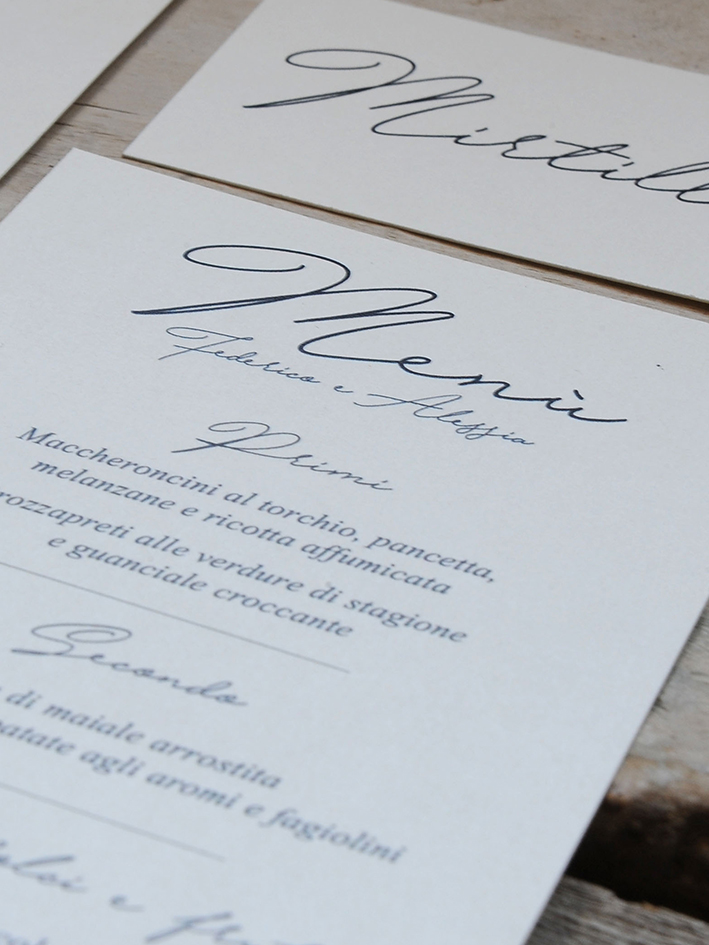 Mirtill
Menù
Federico e Alessia
Primi
Maccheroncini al torchio, pancetta,
melanzane e ricotta affumicata
rozzapreti alle verdure di stagione
e guanciale croccante
Secondo
di maiale arrostita
patate agli aromi e fagiolini